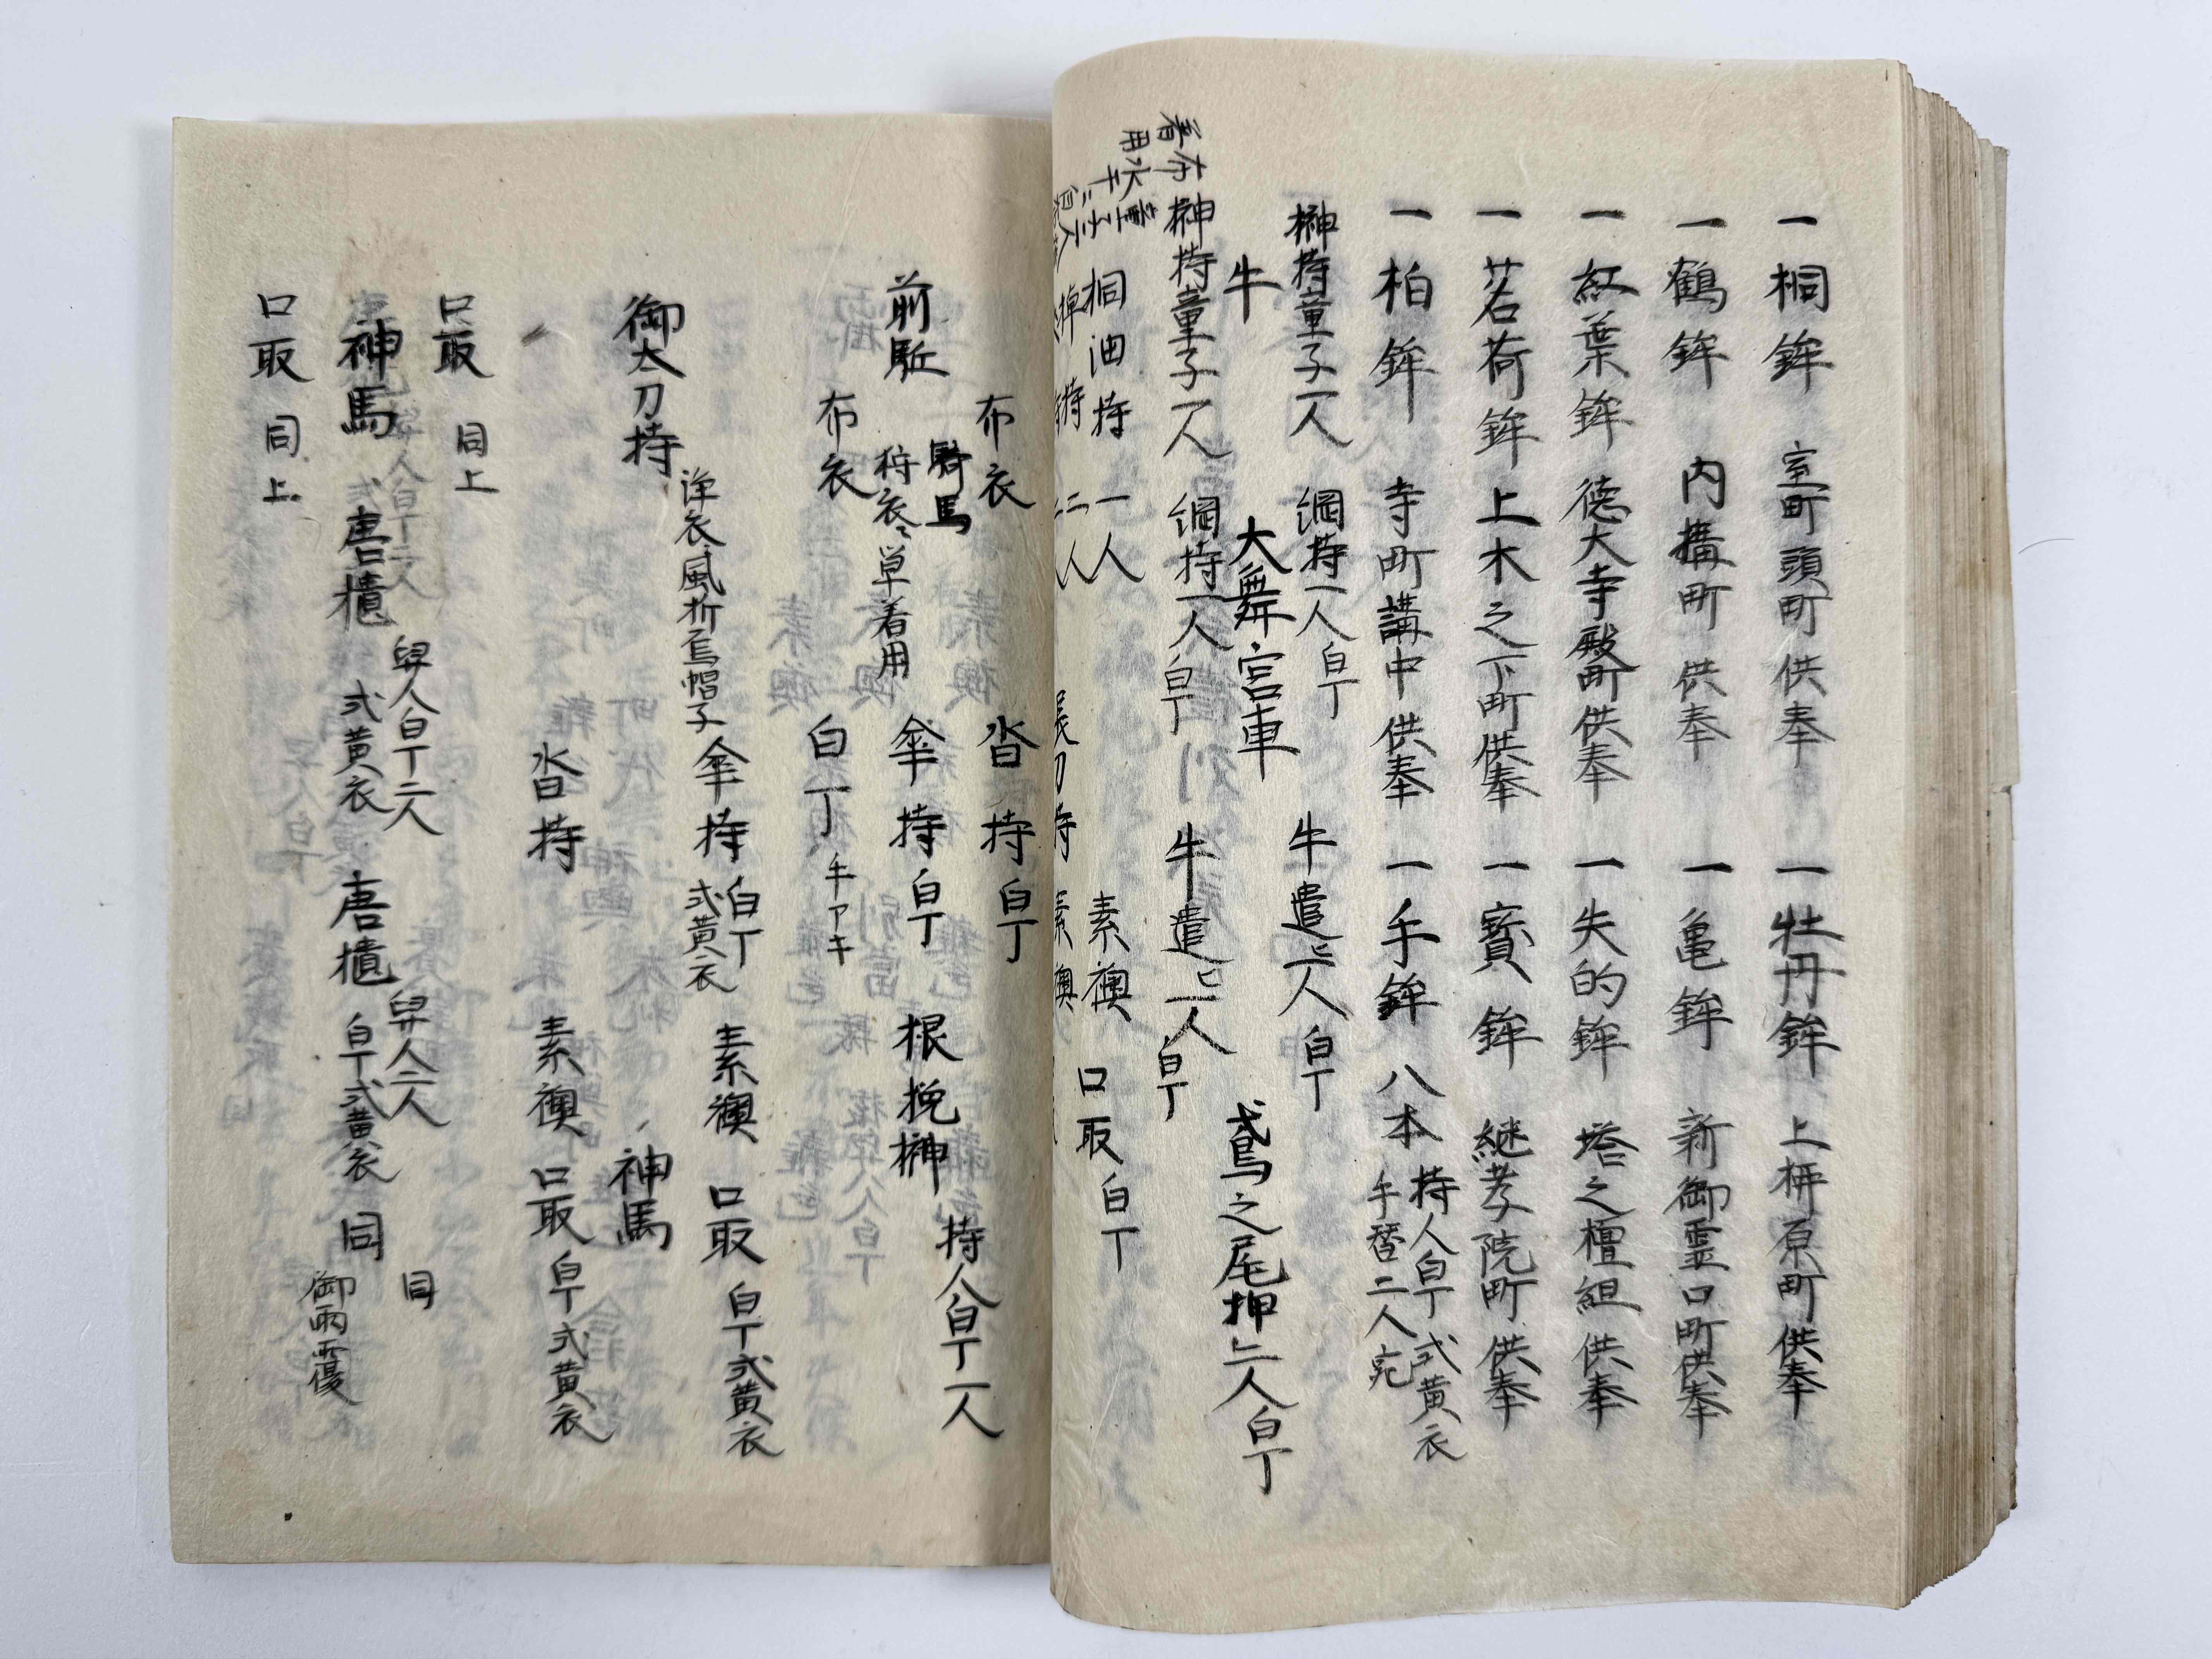 一桐鉾 室町頭町供奉 一牡丹鉾 上柳原町供奉
一鶴鉾 内構町供奉 一亀鉾 新御霊口町供奉
一紅葉鉾 徳大寺殿町供奉 一矢的鉾 塔之檀組供奉
一茗荷鉾 上木之下町供奉 一寳鉾 継孝院町供奉
一柏鉾 寺町講中供奉 一手鉾 八本 持人白丁弍黄衣
手替二人宛
榊持童子一人 綱持一人白丁 牛遣二人白丁
牛 大舞宮車 鳶之尾押二人白丁
榊持童子一人 綱持一人白丁 牛遣二人白丁
桐油持 一人 素襖 口取白丁
布衣 沓持白丁
騎馬 持人白丁一人
前駈 狩衣 単着用 傘持白丁 根掘榊
布衣 白丁 手アキ
浄衣風折烏帽子 傘持 白丁 弍黄衣 素襖 口取 白丁弍黄衣
御太刀持 神馬
沓持 素襖 口取 白丁弍黄衣
口取 同上
舁人白丁二人 舁人二人 同
神馬 唐櫃 弍黄衣 唐櫃 白丁弍黄衣 同 御雨覆
口取 同上